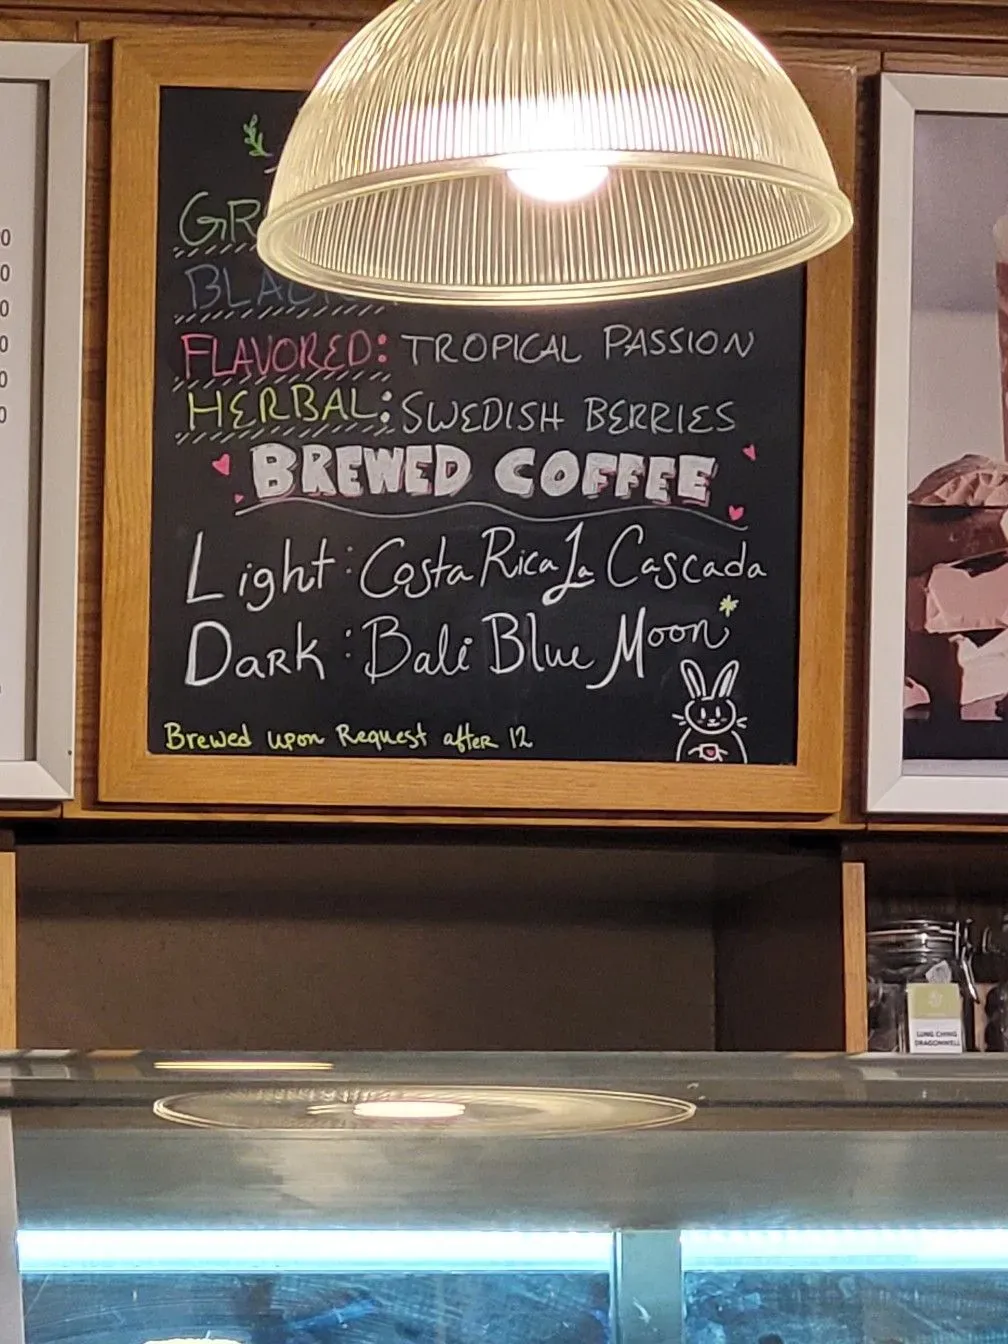 FLAVORED: TROPICAL PASSION
HERBAL: SWEDISH BERRIES
BREWED COFFEE
Light: Costa Rica La Cascada
Dark: Bali Blue Moon
Brewed upon Request after 12
LUNG CHING
DRAGONWELL